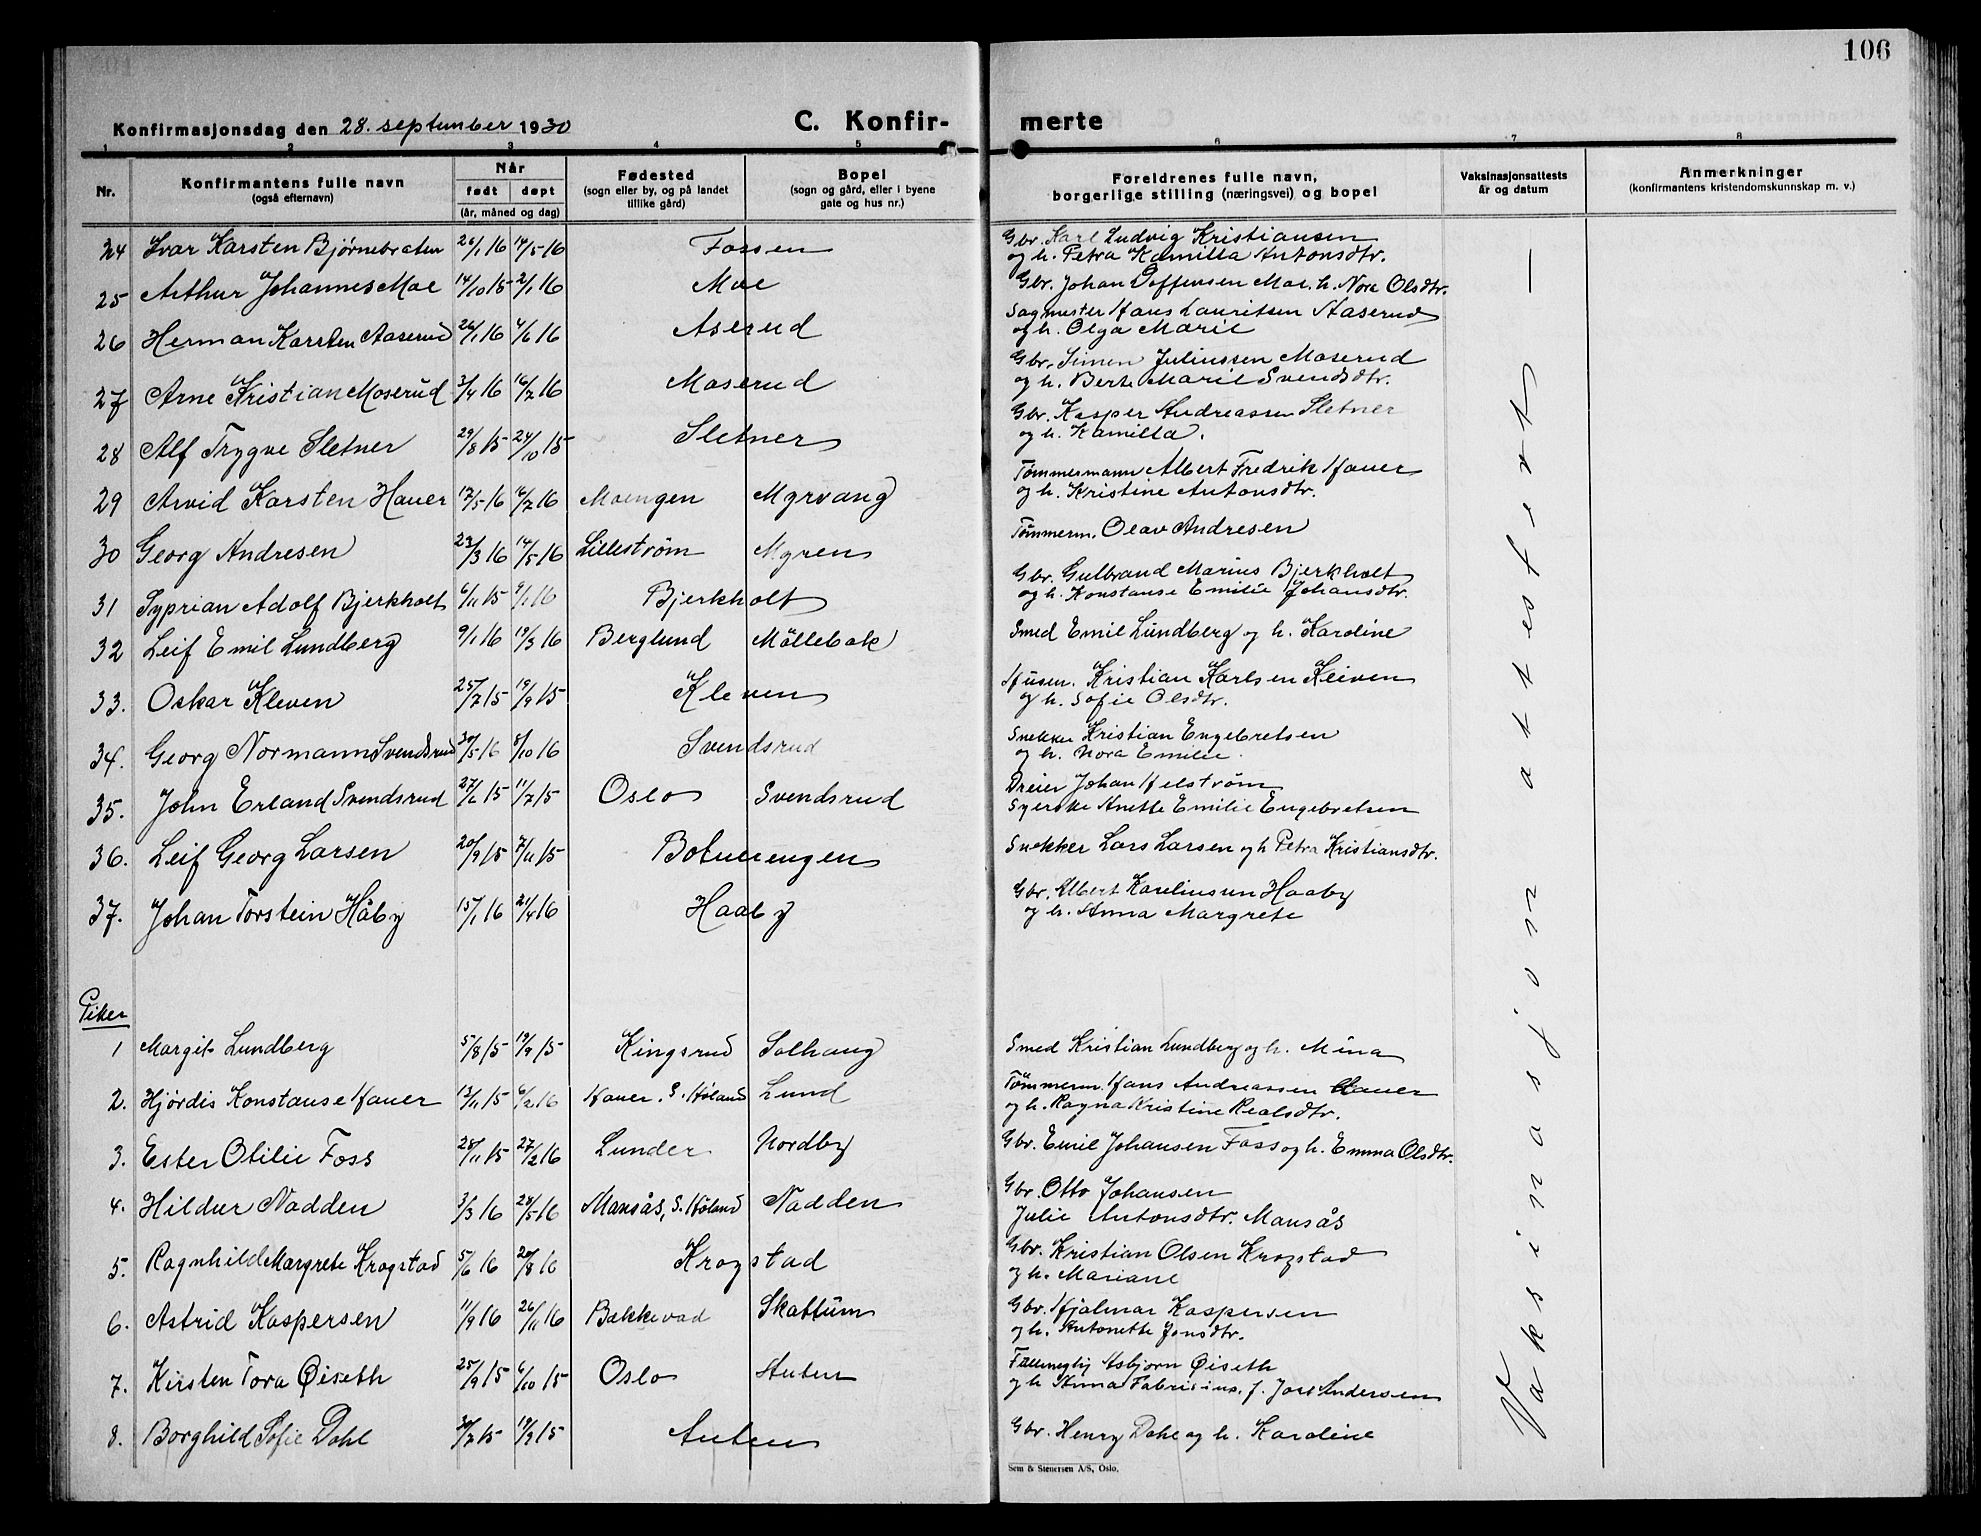 106
Konfirmasjonsdag den 28. september 1930
C. Konfir- merte
1 2 3 4 5 6 7 8
Nr.
Konfirmantens fulle navn
(også efternavn)
Når
født døpt
(år, måned og dag)
Fødested
(sogn eller by, og på landet
tillike gård)
Bopel
(sogn og gård, eller i byene
gate og hus nr.)
Foreldrenes fulle navn,
borgerlige stilling (næringsvei) og bopel
Vaksinasjonsattests
år og datum
Anmerkninger
(konfirmantens kristendomskunnskap m. v.)
24 Ivar Karsten Bjørnebraten 26/1 16 14/5 16 Fossen Gbr. Karl Ludvig Kristiansen
og h. Petra Kamilla Antonsdtr.
25 Arthur Johannes Moe 14/10 15 2/1 16 Moe Gbr. Johan Moe. h. Nora Olsdtr.
26 Herman Karsten Aaserud 26/1 16 4/6 16 Aserud Sagmester Hans Lauritsen Aaserud
og h. Olga Marie
27 Arne Kristian Moserud 3/4 16 16/7 16 Moserud Gbr. Simen Juliussen Moserud
og h. Berte Marie Svendsdtr.
28 Alf Trygve Sletner 29/8 15 24/10 15 Sletner Gbr. Kasper Andreassen Sletner
og h. Kamilla.
29 Arvid Karsten Hauer 17/5 16 16/7 16 Moengen Myrvang Tømmermann Albert Fredrik Hauer
og h. Kristine Antonsdtr.
30 Georg Andresen 23/3 16 14/5 16 Lillestrøm Myren Tømmerm. Olav Andresen
31 Syprian Adolf Bjerkholt 6/11 15 9/1 16 Bjerkholt Gbr. Gulbrand Marius Bjerkholt
og h. Konstanse Emilie Johansdtr.
32 Leif Emil Lundberg 9/1 16 19/3 16 Berglund Möllebak Smed Emil Lundberg og h. Karoline
33. Oskar Kleven 25/7 15 19/9 15 Kleven Husm. Kristian Karlsen Kleven
og h. Sofie Olsdtr.
34. Georg Normann Svendsrud 30/5 16 8/10 16 Svendsrud Snekker Kristian Engebretsen
og h. Nora Emilie.
35. John Erland Svendsrud 27/6 15 11/7 15 Oslo Svendsrud Dreier Johan Helström
Syerske Anette Emilie Engebretsen
36. Leif Georg Larsen 20/9 15 7/11 15 Botnerengen Snekker Lars Larsen og h Petra Kristiansdtr.
37. Johan Torstein Håby 15/1 16 21/4 16 Haaby Gbr. Albert Karelinsen Haaby
og h. Anna Margrete
Piker
1 Margit Lundberg 5/8 15 19/9 15 Kingsrud Solhaug Smed Kristian Lundberg og h. Mina
2. Hjørdis Konstanse Hauer 13/11 15 6/2 16 Hauer. S. Høland Lund Tömmerm. Hans Andreassen Hauer
og h. Ragna Kristine Realsdtr.
3. Ester Otilie Foss 28/11 15 27/2 16 Lunder Nordby Gbr. Emil Johansen Foss og h. Emma Olsdtr.
4. Hildur Nadden 3/3 16 28/5 16 Mansås, S. Høland Nadden Gbr. Otto Johansen
Julie Antonsdtr. Mansås
5. Ragnhild Margrete Krogstad 5/6 16 20/8 16 Krogstad Gbr. Kristian Olsen Krogstad
og h. Mariane
6. Astrid Kaspersen 11/9 16 26/11 16 Bakkevad Skattum Gbr. Hjalmar Kaspersen
og h. Antonette Jensdtr.
7. Kirsten Tora Øiseth 25/9 15 6/10 15 Oslo Auten Asbjørn Øiseth
og h Anna Fabricius. f. Andersen
8. Borghild Sofie Dahl 30/7 15 19/9 15 Auten Gbr. Henry Dahl og h. Karoline
Vaksinasjon attestert
Sem & Stenersen A/S, Oslo.